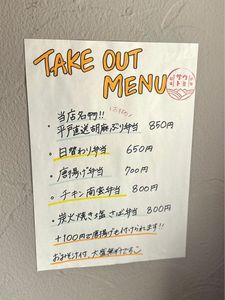 TAKE OUT
MENU
当店名物!!
・平戸直送胡麻ぶり弁当 850円
・日替わり弁当 650円
・唐揚げ弁当 700円
・チキン南蛮弁当 800円
・炭火焼き塩さば弁当 800円
+100円で唐揚げも付けられます!!